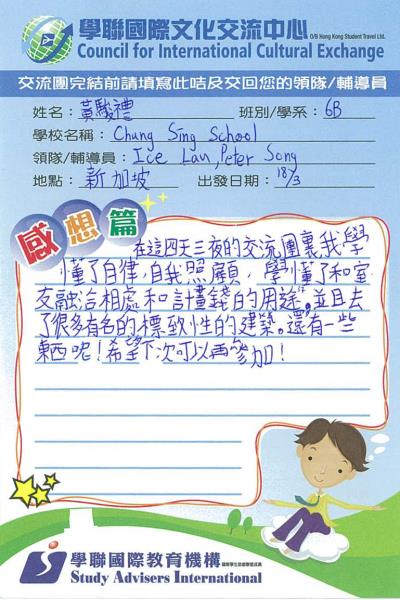 學聯國際文化交流中心 O/B Hong Kong Student Travel Ltd.
Council for International Cultural Exchange
交流團完結前請填寫此咭及交回您的領隊/輔導員
姓名：黃駿禮 班別/學系：6B
學校名稱：Chung Sing School
領隊/輔導員：Ice Lau, Peter Song
地點：新加坡 出發日期：18/3
感想篇
在這四天三夜的交流團裏我學
懂了自律,自我照顧，學懂了和室
友融洽相處和計劃錢的用途,並且去
了很多有名的標致性的建築。還有一些
東西呢！希望下次可以再參加！
學聯國際教育機構
Study Advisers International